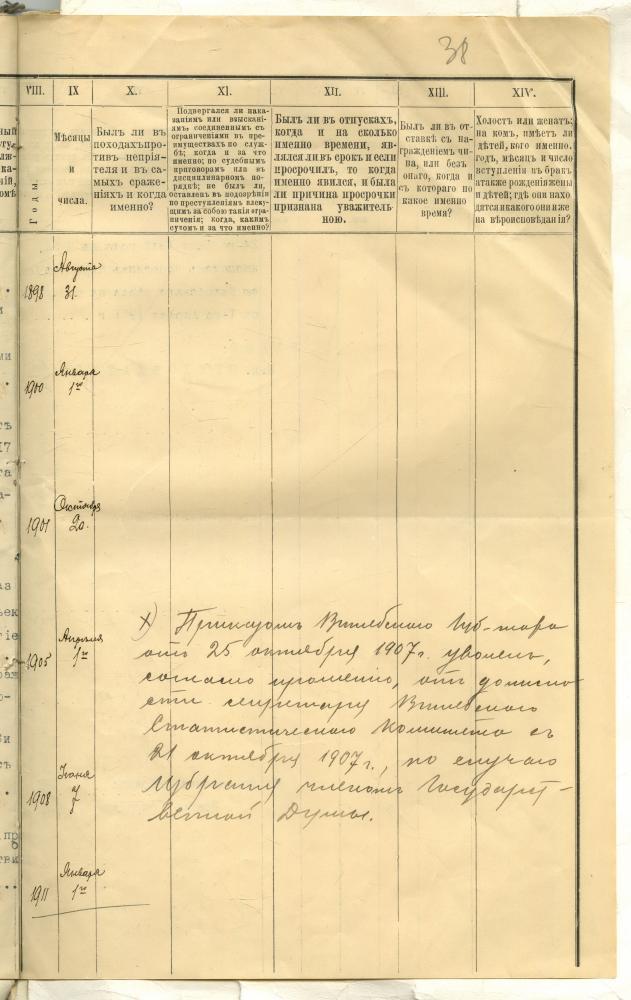 38
VIII.
IX
X.
XI.
XII.
XIII.
XIV.
Годы.
Мѣсяцы
и
числа.
Былъ ли въ
походахъ про-
тивъ непрія-
теля и въ са-
мыхъ сраже-
ніяхъ и когда
именно?
Подвергался ли нака-
заніямъ или взыскані-
ямъ, соединеннымъ съ
ограниченіями въ пре-
имуществахъ по служ-
бѣ; когда и за что
именно; по судебнымъ
приговорамъ или въ
дисциплинарномъ по-
рядкѣ; не былъ ли,
оставленъ въ подозрѣніи
по преступленіямъ влеку-
щимъ за собою такія огра-
ниченія; когда, какимъ
судомъ и за что именно?
Былъ ли въ отпускахъ,
когда и на сколько
именно времени, яв-
лялся ли въ срокъ и если
просрочилъ, то когда
именно явился, и была
ли причина просрочки
признана уважитель-
ною.
Былъ ли въ от-
ставкѣ съ на-
гражденіемъ чи-
на, или безъ
онаго, когда и
съ котораго по
какое именно
время?
Холостъ или женатъ;
на комъ, имѣетъ ли
дѣтей, кого именно.
годъ, мѣсяцъ и число
вступленія въ бракъ
а также рожденія жены
и дѣтей; гдѣ они нахо-
дятся и какого они и же-
на вѣроисповѣданія?
Августа
1898 31.
Января
1900 1го
Октября
1901 20.
Апрѣля
1905 1го
х) Приказомъ Витебскаго Губ-тора
отъ 25 октября 1907 г. уволенъ,
согласно прошенію, отъ должно
сти секретаря Витебскаго
Статистическаго Комитета съ
21 октября 1907 г., по случаю
избранія членомъ Государст-
венной Думы.
Іюня
1908 7
Января
1911 1го